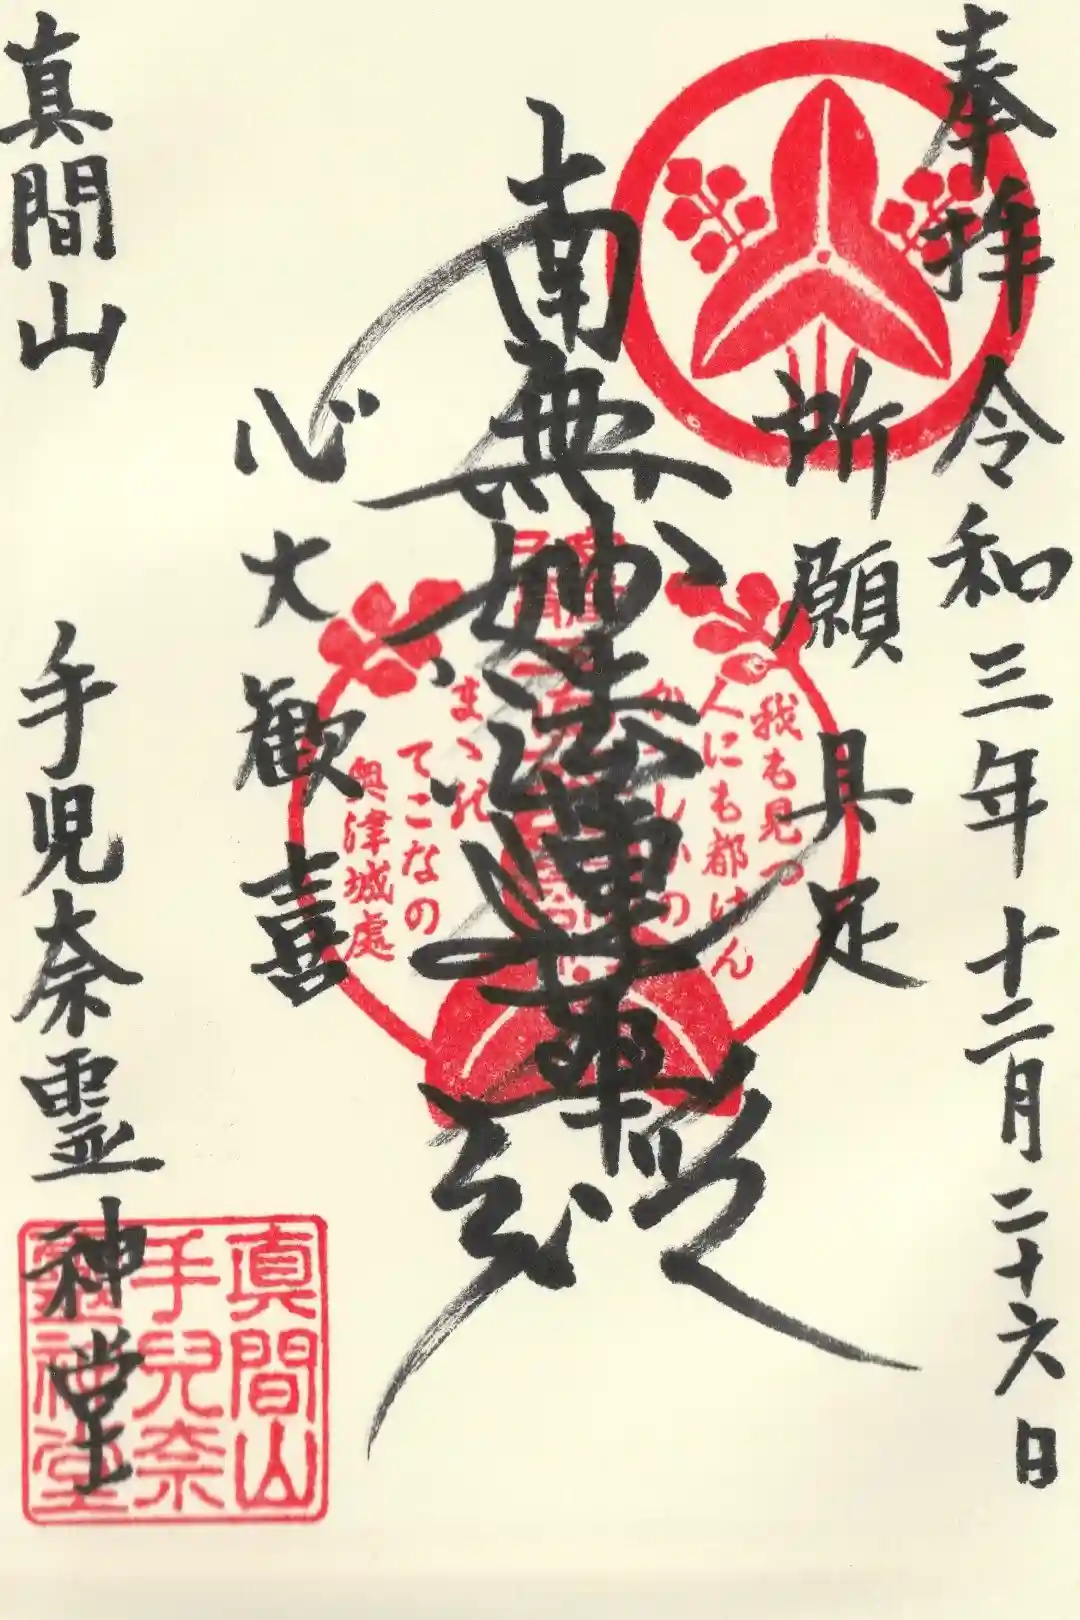 奉拝 令和三年十二月二十六日
所願具足
南無妙法蓮華経
心大歓喜
真間山
手児奈霊神堂
我も見つ
人にも都けん
かつしかの
まゝの
てこなの
奥津城處
真間山
手兒奈
靈神堂